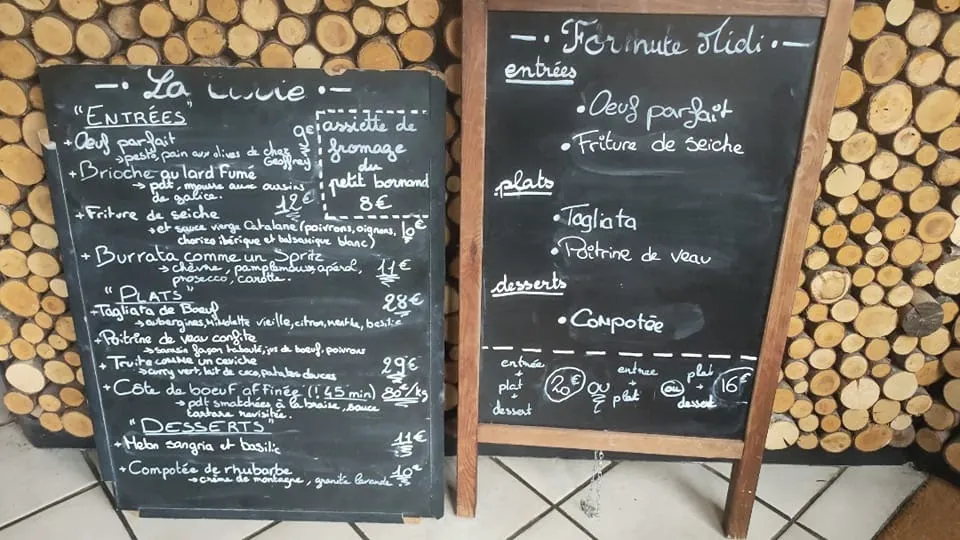 La
"ENTRÉES"
+ Oeuf parfait 9€
→ pesto, pain aux olives de chez
Geoffrey
+ Brioche au lard Fumé
→ pdt, mousse aux oursins
de galice. 12€
+ Friture de seiche
→ et sauce vierge Catalane (poivrons, oignons, 10€
chorizo ibérique et balsamique blanc)
+ Burrata comme un Spritz
→ chèvre, pamplemousse, apérol, 11€
prosecco, carotte.
assiette de
fromage
du
petit bornand
8€
"PLATS"
+ Tagliata de Boeuf 28€
→ aubergines, Mimolette vieille, citron, menthe, basilic
+ Poitrine de veau confite
→ façon taboulé, jus de boeuf, poivrons
+ Truite comme un ceviche 29€
→ curry vert, lait de coco, patates douces
+ Côte de boeuf affinée (! 45 min) 80€/kg
→ pdt smatchées à la braise, sauce
tartare revisitée.
"DESSERTS"
+ Melon sangria et basilic 11€
+ Compotée de rhubarbe 10€
→ crème de montagne, granité lavande
Formule Midi
entrées
• Oeuf parfait
• Friture de seiche
plats
• Tagliata
• Poitrine de veau
desserts
• Compotée
entrée
+
plat
+
dessert
20€
ou
entree
+
plat
ou
plat
+
dessert
16€